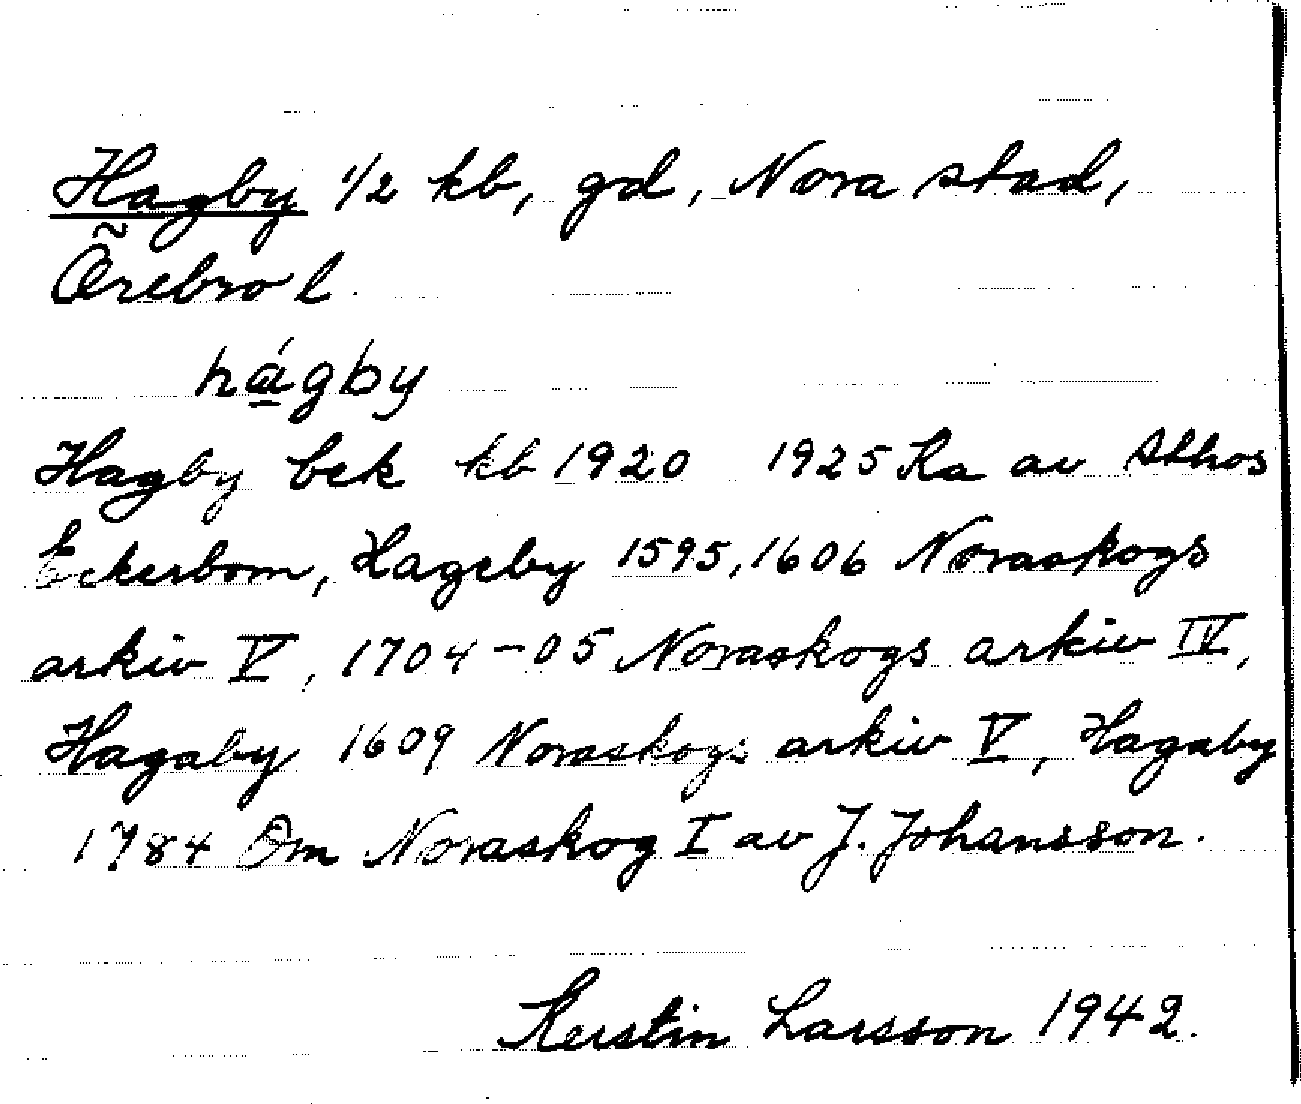 Hagby 1/2 kb, gd, Nora stad,
Örebro l.
hágby
Hagby bek kb 1920 1925 Ka av Athos
Eckerbom, Hageby 1595, 1606 Noraskogs
arkiv V, 1704-05 Noraskogs arkiv IV,
Hagaby 1609 Noraskogs arkiv V, Hagaby
1784 Om Noraskog I av J. Johansson.
Kerstin Larsson 1942.